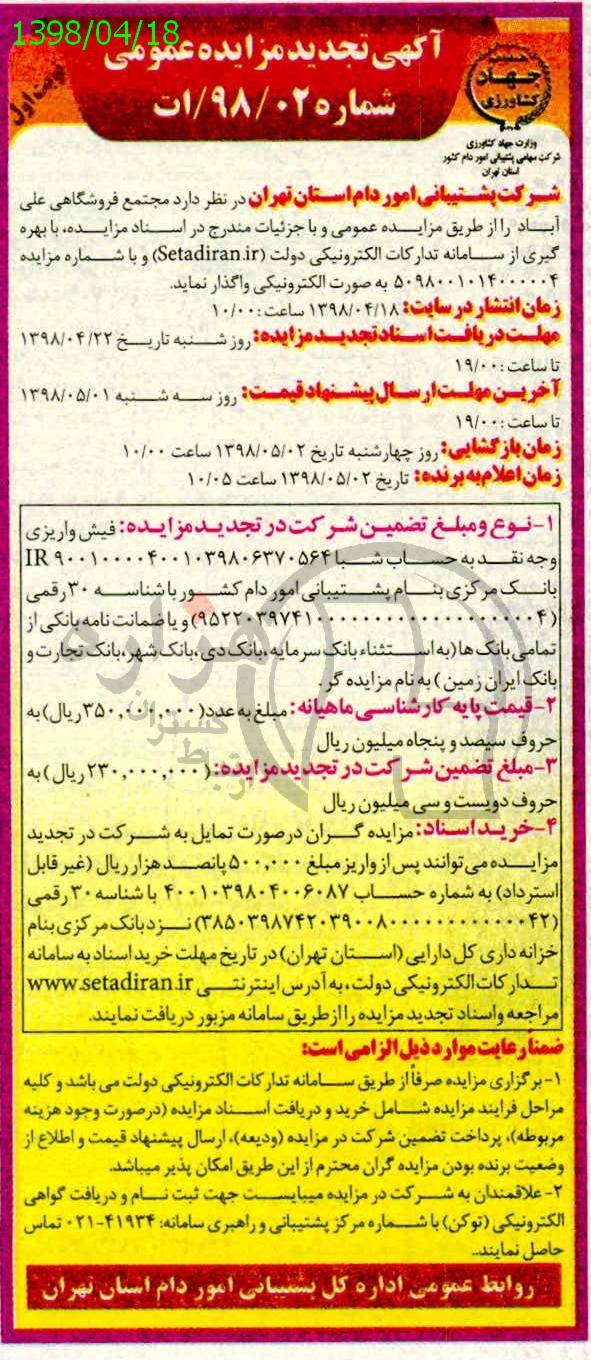 1398/04/18
آگهی تجدید مزایده عمومی
شماره ۹۸/۰۲/ات
نوبت اول
جهاد
کشاورزی
وزارت جهاد کشاورزی
شرکت سهامی پشتیبانی امور دام کشور
استان تهران
شرکت پشتیبانی امور دام استان تهران در نظر دارد مجتمع فروشگاهی علی
آباد را از طریق مزایده عمومی و با جزئیات مندرج در اسناد مزایده، با بهره
گیری از سامانه تدارکات الکترونیکی دولت (Setadiran.ir) و با شماره مزایده
۵۰۹۸۰۰۱۰۱۴۰۰۰۰۰۴ به صورت الکترونیکی واگذار نماید.
زمان انتشار در سایت: ۱۳۹۸/۰۴/۱۸ ساعت: ۱۰/۰۰
مهلت دریافت اسناد تجدید مزایده: روز شنبه تاریخ ۱۳۹۸/۰۴/۲۲
تا ساعت: ۱۹/۰۰
آخرین مهلت ارسال پیشنهاد قیمت: روز سه شنبه ۱۳۹۸/۰۵/۰۱
تا ساعت: ۱۹/۰۰
زمان بازگشایی: روز چهارشنبه تاریخ ۱۳۹۸/۰۵/۰۲ ساعت ۱۰/۰۰
زمان اعلام به برنده: تاریخ ۱۳۹۸/۰۵/۰۲ ساعت ۱۰/۰۵
۱- نوع و مبلغ تضمین شرکت در تجدید مزایده: فیش واریزی
وجه نقد به حساب شبا IR ۹۰۰۱۰۰۰۰۴۰۰۱۰۳۹۸۰۶۳۷۰۵۶۴
بانک مرکزی بنام پشتیبانی امور دام کشور با شناسه ۳۰ رقمی
و یا ضمانت نامه بانکی از
تمامی بانک ها (به استثناء بانک سرمایه، بانک دی، بانک شهر، بانک تجارت و
بانک ایران زمین) به نام مزایده گر.
۲- قیمت پایه کارشناسی ماهیانه: مبلغ به عدد (۳۵۰,۰۰۰,۰۰۰ ریال) به
حروف سیصد و پنجاه میلیون ریال
۳- مبلغ تضمین شرکت در تجدید مزایده: (۲۳۰,۰۰۰,۰۰۰ ریال) به
حروف دویست و سی میلیون ریال
۴- خرید اسناد: مزایده گران درصورت تمایل به شرکت در تجدید
مزایده می توانند پس از واریز مبلغ ۵۰۰,۰۰۰ پانصد هزار ریال (غیر قابل
استرداد) به شماره حساب ۴۰۰۱۰۳۹۸۰۴۰۰۶۰۸۷ با شناسه ۳۰ رقمی
نزد بانک مرکزی بنام
خزانه داری کل دارایی (استان تهران) در تاریخ مهلت خرید اسناد به سامانه
تدارکات الکترونیکی دولت، به آدرس اینترنتی www.setadiran.ir
مراجعه و اسناد تجدید مزایده را از طریق سامانه مزبور دریافت نمایند.
ضمنا رعایت موارد ذیل الزامی است:
۱- برگزاری مزایده صرفاً از طریق سامانه تدارکات الکترونیکی دولت می باشد و کلیه
مراحل فرایند مزایده شامل خرید و دریافت اسناد مزایده (درصورت وجود هزینه
مربوطه)، پرداخت تضمین شرکت در مزایده (ودیعه)، ارسال پیشنهاد قیمت و اطلاع از
وضعیت برنده بودن مزایده گران محترم از این طریق امکان پذیر میباشد.
۲- علاقمندان به شرکت در مزایده میبایست جهت ثبت نام و دریافت گواهی
الکترونیکی (توکن) با شماره مرکز پشتیبانی و راهبری سامانه: ۴۱۹۳۴-۰۲۱ تماس
حاصل نمایند..
روابط عمومی اداره کل پشتیبانی امور دام استان تهران
هزاره